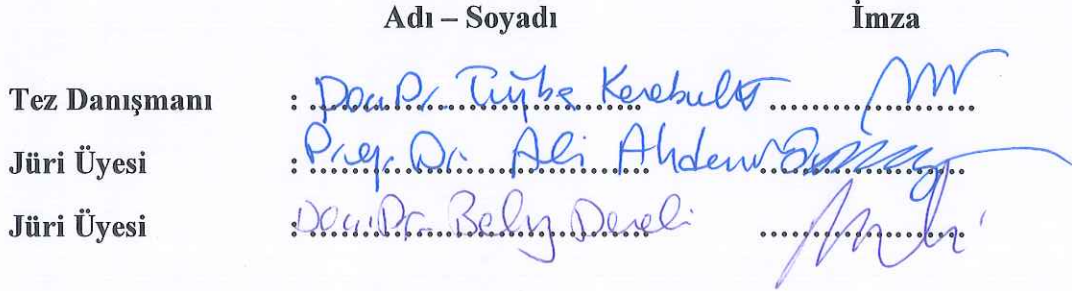 Adı – Soyadı İmza
Tez Danışmanı : Doç. Dr. Tuğba Karabulut
Jüri Üyesi : Prof. Dr. Ali Akdemir
Jüri Üyesi : Doç. Dr. Dereli